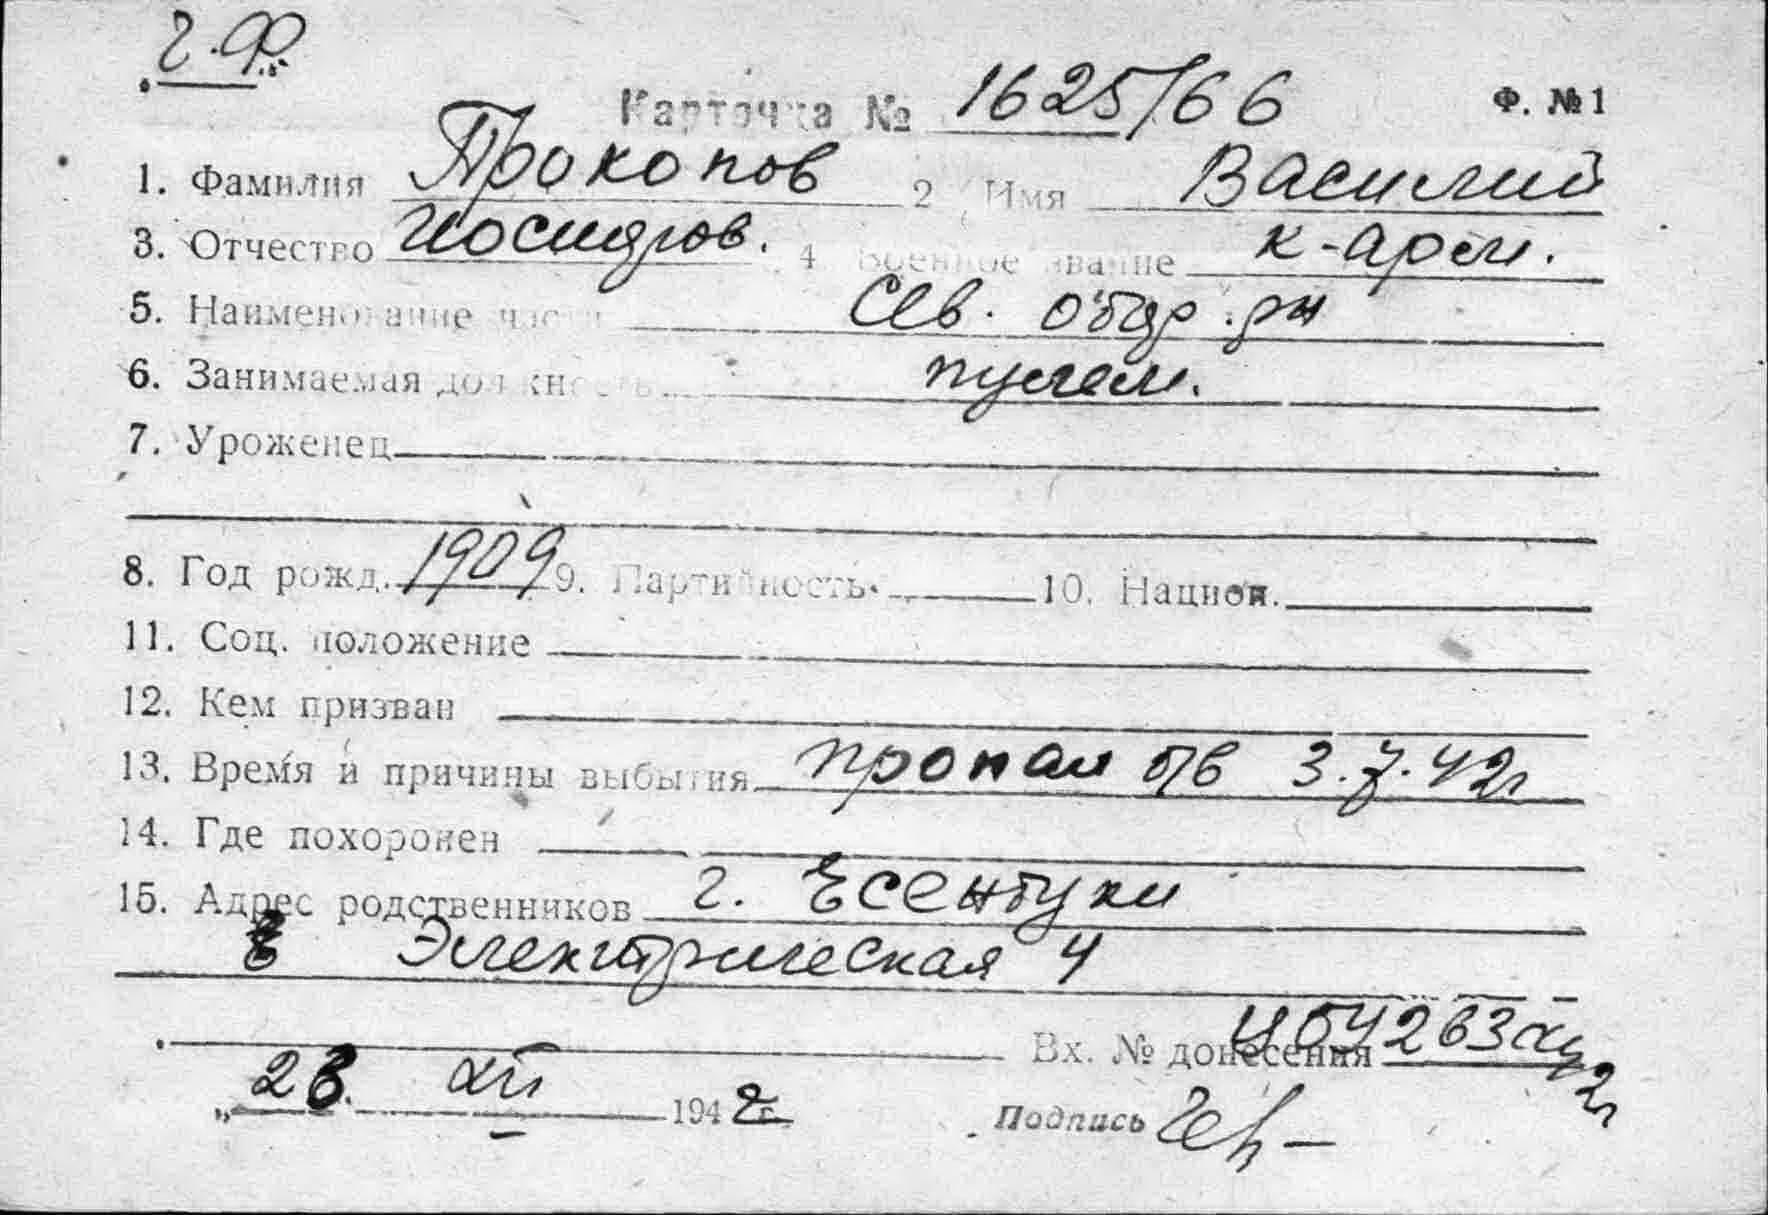 Ч.Ф
Карточка № 1625/66 Ф. №1
1. Фамилия Прокопов 2 Имя Василий
3. Отчество Иосидфов. 4 Военное звание к-арм.
5. Наименование части Сев. обор. рн
6. Занимаемая должность пулем.
7. Уроженец
8. Год рожд. 1909 9. Партийность 10. Национ.
11. Соц. положение
12. Кем призван
13. Время и причины выбытия пропал б/в 3.7.42г
14. Где похоронен
15. Адрес родственников г. Есентуки
Электрическая 4
Вх. № донесения
„23. XII 1942г.
Подпись